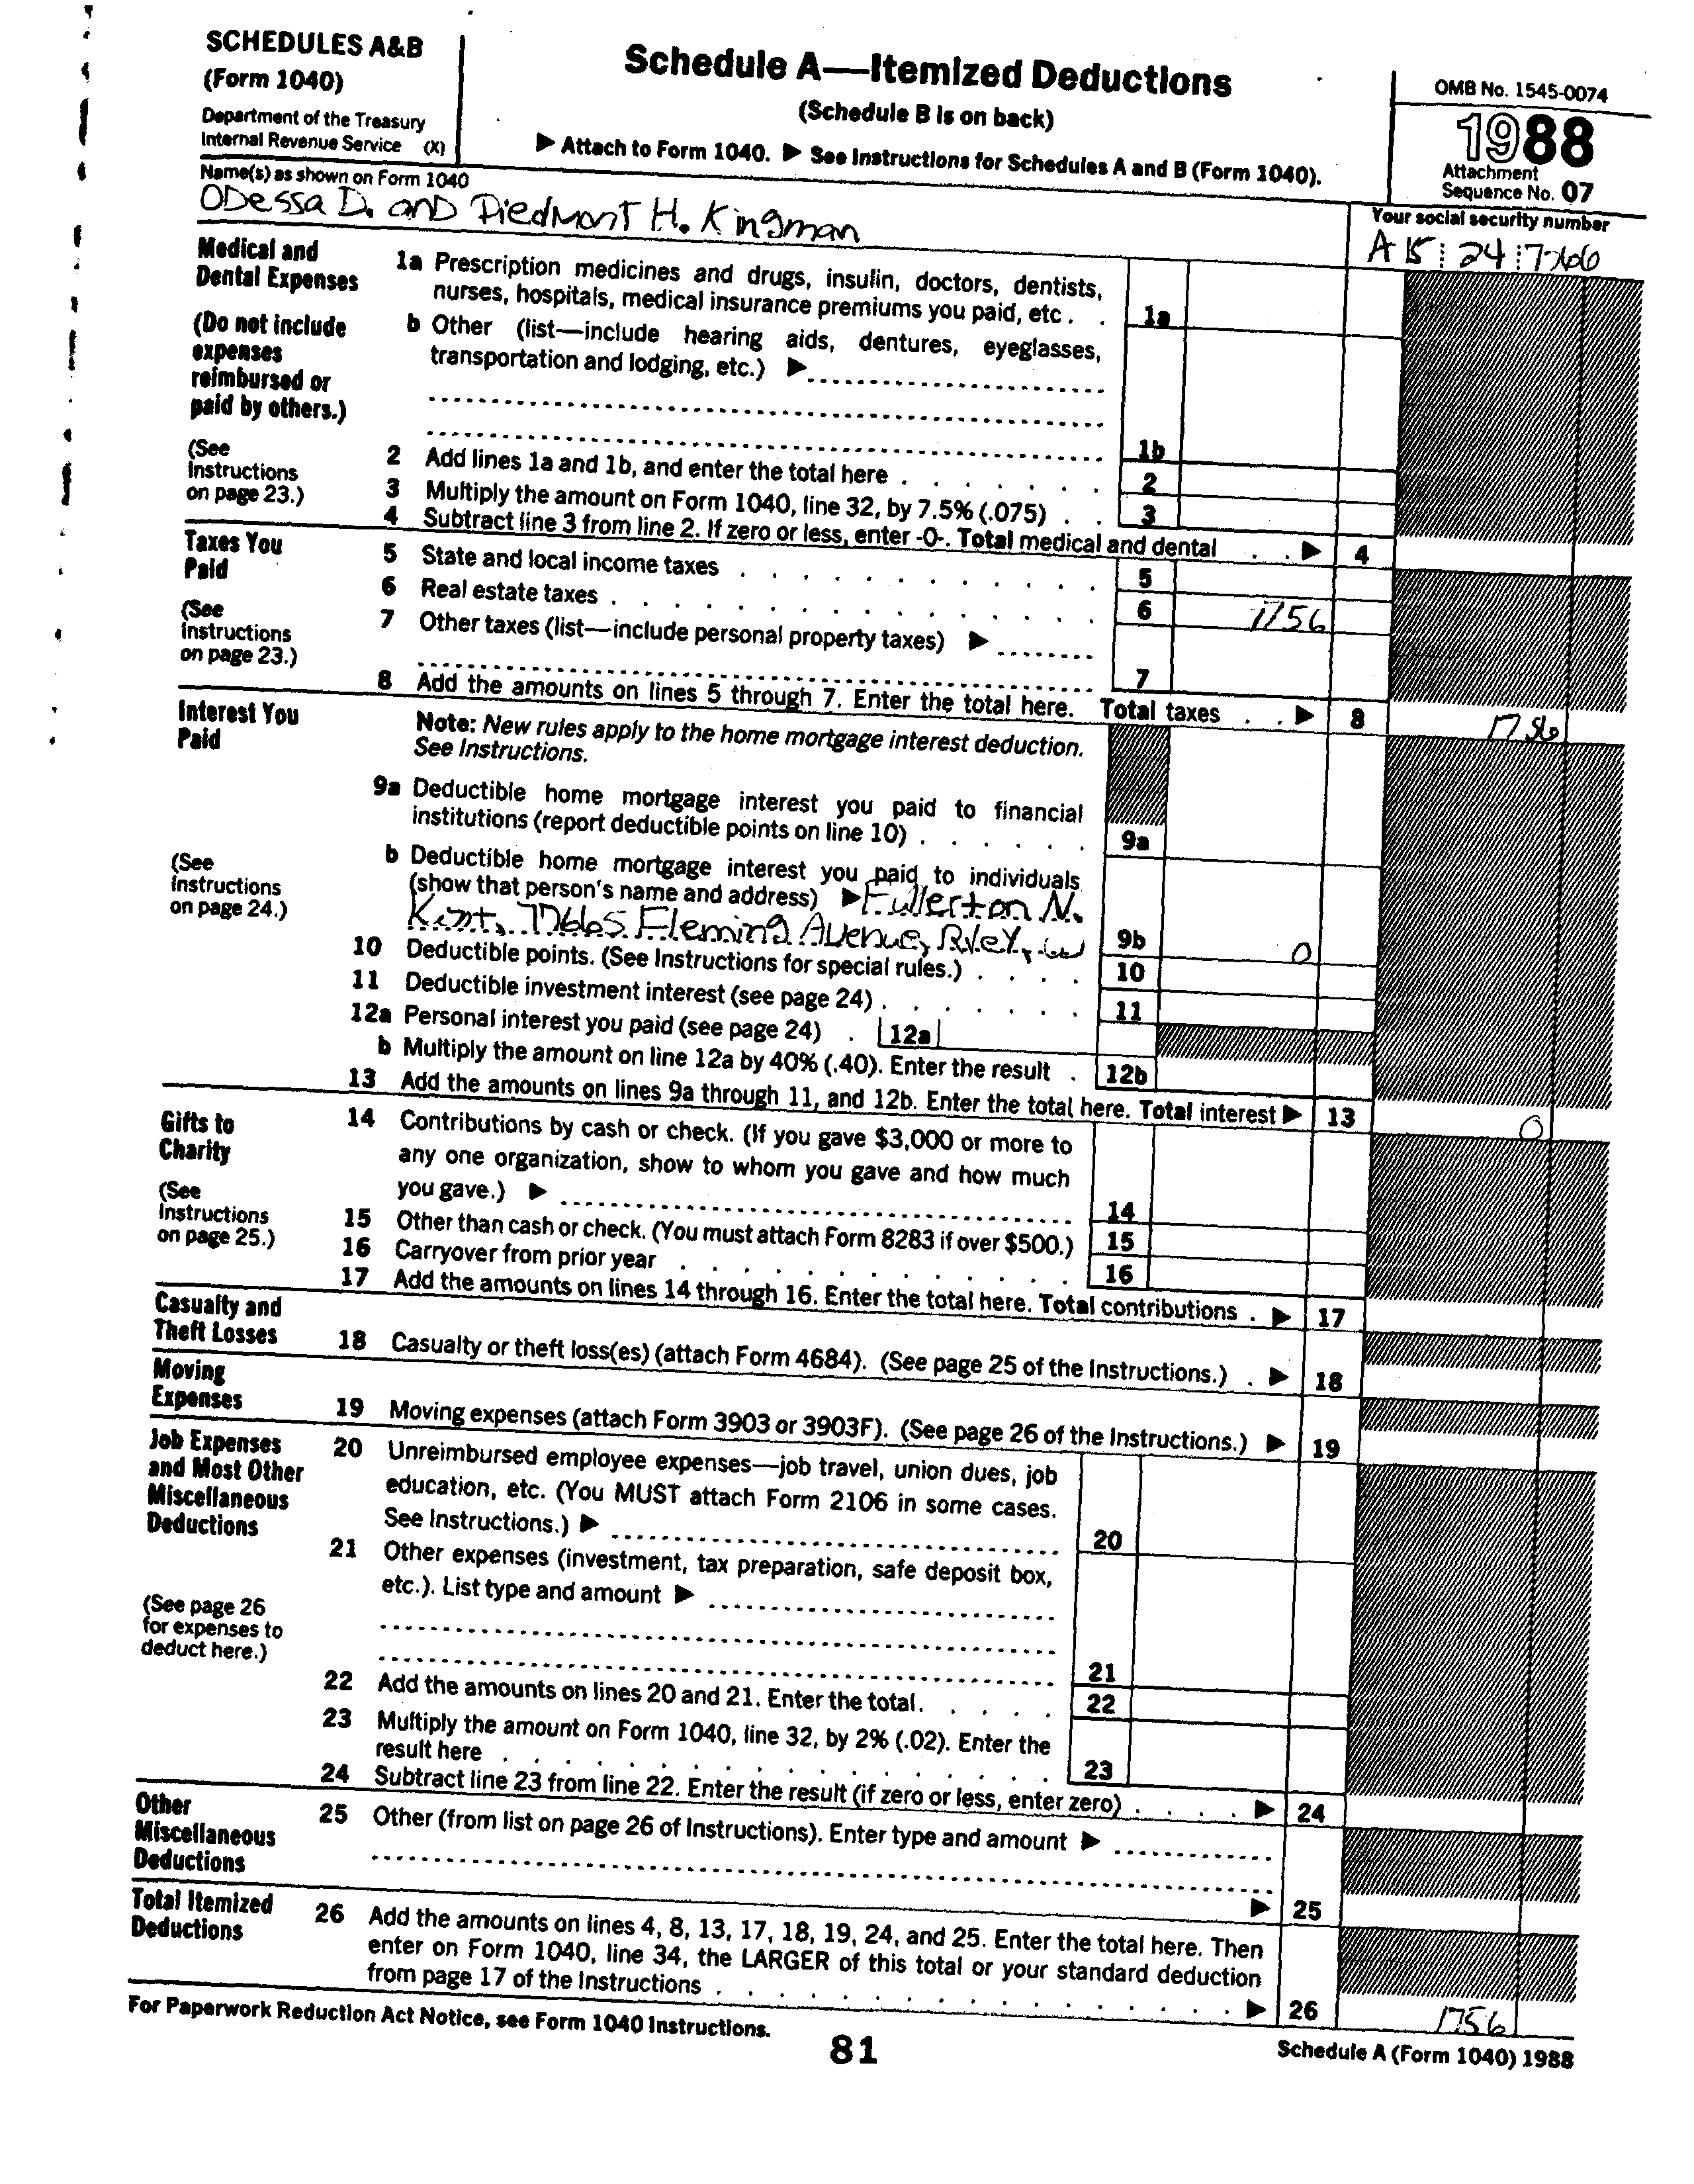 SCHEDULES A&B
(Form 1040)
Department of the Treasury
Internal Revenue Service (X)
Schedule A—Itemized Deductions
(Schedule B is on back)
▶ Attach to Form 1040. ▶ See Instructions for Schedules A and B (Form 1040).
OMB No. 1545-0074
1988
Attachment
Sequence No. 07
Name(s) as shown on Form 1040
Odessa D. and Piedmont H. Kingman
Your social security number
24
Medical and
Dental Expenses
(Do not include
expenses
reimbursed or
paid by others.)
(See
Instructions
on page 23.)
1a Prescription medicines and drugs, insulin, doctors, dentists,
nurses, hospitals, medical insurance premiums you paid, etc . . 1a
b Other (list—include hearing aids, dentures, eyeglasses,
transportation and lodging, etc.) ▶
1b
2 Add lines 1a and 1b, and enter the total here . . . . . . . 2
3 Multiply the amount on Form 1040, line 32, by 7.5% (.075) . . 3
4 Subtract line 3 from line 2. If zero or less, enter -0-. Total medical and dental . . ▶ 4
Taxes You
Paid
(See
Instructions
on page 23.)
5 State and local income taxes . . . . . . . . . . . . 5
6 Real estate taxes . . . . . . . . . . . . . . . 6
7 Other taxes (list—include personal property taxes) ▶
7
8 Add the amounts on lines 5 through 7. Enter the total here. Total taxes . . ▶ 8
Interest You
Paid
(See
Instructions
on page 24.)
Note: New rules apply to the home mortgage interest deduction.
See Instructions.
9a Deductible home mortgage interest you paid to financial
institutions (report deductible points on line 10) . . . . . . 9a
b Deductible home mortgage interest you paid to individuals
(show that person's name and address) ▶ Fullerton N.
Fleming Avenue, 9b 0
10 Deductible points. (See Instructions for special rules.) . . . . 10
11 Deductible investment interest (see page 24) . . . . . . . 11
12a Personal interest you paid (see page 24) . 12a
b Multiply the amount on line 12a by 40% (.40). Enter the result . 12b
13 Add the amounts on lines 9a through 11, and 12b. Enter the total here. Total interest ▶ 13 0
Gifts to
Charity
(See
Instructions
on page 25.)
14 Contributions by cash or check. (If you gave $3,000 or more to
any one organization, show to whom you gave and how much
you gave.) ▶ 14
15 Other than cash or check. (You must attach Form 8283 if over $500.) 15
16 Carryover from prior year . . . . . . . . . . . . . 16
17 Add the amounts on lines 14 through 16. Enter the total here. Total contributions . ▶ 17
Casualty and
Theft Losses
18 Casualty or theft loss(es) (attach Form 4684). (See page 25 of the Instructions.) . ▶ 18
Moving
Expenses
19 Moving expenses (attach Form 3903 or 3903F). (See page 26 of the Instructions.) ▶ 19
Job Expenses
and Most Other
Miscellaneous
Deductions
(See page 26
for expenses to
deduct here.)
20 Unreimbursed employee expenses—job travel, union dues, job
education, etc. (You MUST attach Form 2106 in some cases.
See Instructions.) ▶ 20
21 Other expenses (investment, tax preparation, safe deposit box,
etc.). List type and amount ▶
21
22 Add the amounts on lines 20 and 21. Enter the total. . . . . 22
23 Multiply the amount on Form 1040, line 32, by 2% (.02). Enter the
result here . . . . . . . . . . . . . . . . . 23
24 Subtract line 23 from line 22. Enter the result (if zero or less, enter zero) . . . . ▶ 24
Other
Miscellaneous
Deductions
25 Other (from list on page 26 of Instructions). Enter type and amount ▶
▶ 25
Total Itemized
Deductions
26 Add the amounts on lines 4, 8, 13, 17, 18, 19, 24, and 25. Enter the total here. Then
enter on Form 1040, line 34, the LARGER of this total or your standard deduction
from page 17 of the Instructions . . . . . . . . . . . . . . . . . ▶ 26 1756
For Paperwork Reduction Act Notice, see Form 1040 Instructions.
81
Schedule A (Form 1040) 1988